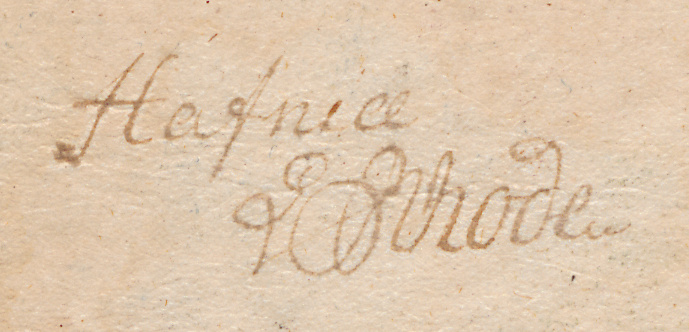 Hafniæ
Rhoden